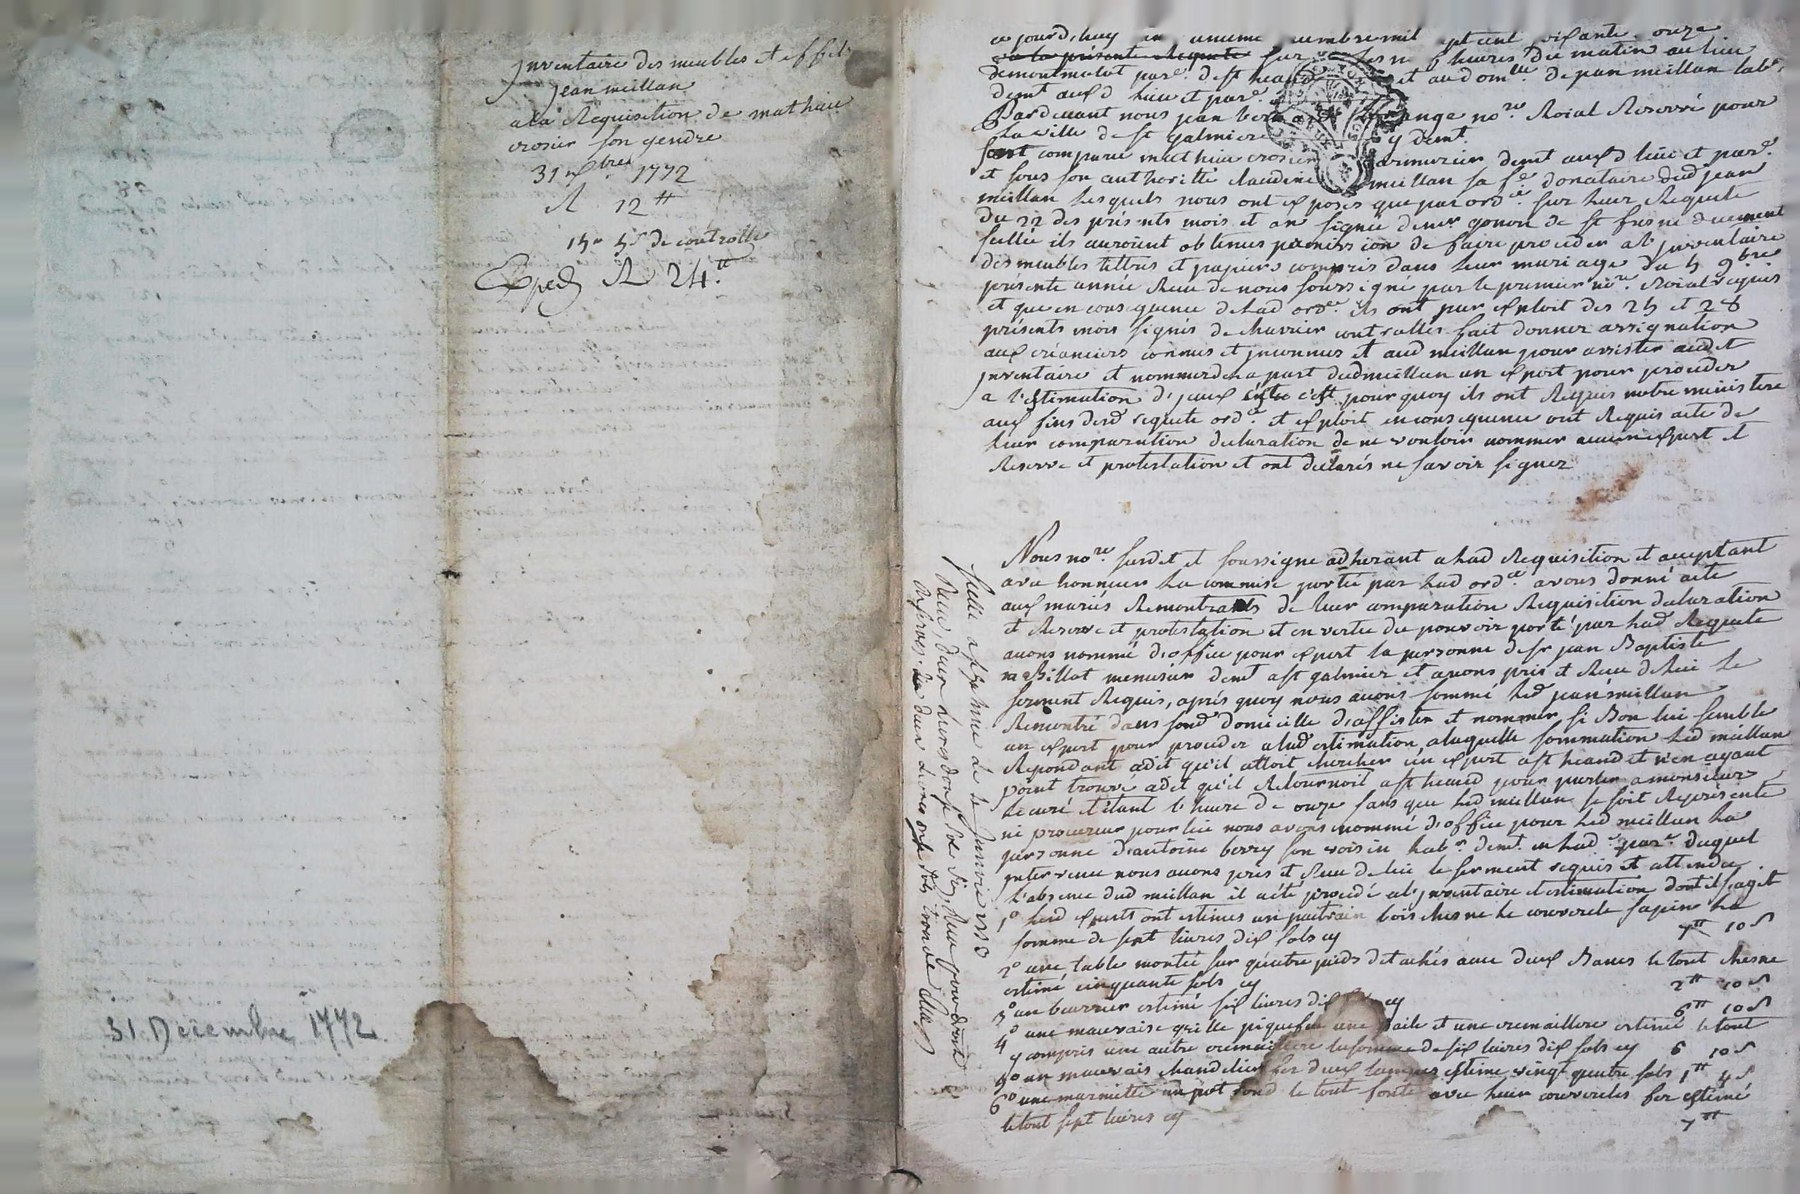 Inventaire des meubles et effets
jean meillan
a la Requisition de mathieu
crosier son gendre
31 xbres 1772
R 12 tt
15 s 5 d de controlle
Exped R 24 tt
31 Décembre 1772.
ce jourd,huy
a la présente Requete sur heures du matin au lieu
de montmalot par.e de st heand et au dom.lle de jean meillan lab.r
demt aud lieu et par.e
Pardevant nous jean no.re Roial Reservé pour
La ville de st galmier y demt.
sont comparu mathieu crosier armurier demt aud lieu et par.e
et sous son authorité claudine meillan sa fe donataire dud jean
meillan Lesquels nous ont exposés que par ord.ce sur leur Requete
du 22 des présents mois et an signée demr gonon de st fresne duement
scellée ils auroient obtenus permission de faire proceder a l'jnventaire
des meubles tittres et papiers compris dans leur mariage du 5 9bre
présente année Reçu de nous soussigné par le premier no.re Roial requis
et que en consequence de lad ord.ce ils ont par exploit des 25 et 28
présents mois signés de chavrier controllés fait donner assignation
aux créanciers connus et jnconnus et aud meillan pour assister audt
jnventaire et nommer de la part dud meillan un expert pour proceder
a l'estimation d'jceux c'est pourquoy ils ont Requis notre ministere
aux fins desd requete ord.ce et exploit en consequence ont Requis acte de
leur comparution declaration de ne vouloir nommer aucun expert et
Reserve et protestation et ont declarés ne savoir signer
Nous no.re susdit et soussigné adherant a lad Requisition et acceptant
avec honneur La commise portée par lad ord.ce avons donné acte
aux mariés Remontrants de leur comparution Requisition declaration
et Reserve et protestation et en vertu du pouvoir porté par lad Requete
avons nommé d'office pour expert la personne de sr jean Baptiste
menusier demt a st galmier et avons pris et Reçu de lui le
serment Requis, aprés quoy nous avons sommé Led jean meillan
Rencontré dans sond domicille d'assister et nommer si Bon lui semble
un expert pour proceder a lad estimation, a laquelle sommation Led meillan
Repondant a dit qu'il alloit chercher un expert a st heand et n'en ayant
point trouvé a dit qu'il Retournoit a st heand pour parler a monsieur
le curé et étant l'heure de onze sans que led meillan se soit Représenté
ni procureur pour lui nous avons nommé d'office pour led meillan La
personne d'antoine berry son voisin lab.r demt. en lad par.e duquel
jntervenu nous avons pris et Reçu de lui le serment requis et attendu
l'absence dud meillan il a été procedé a l'jnventaire et estimation dont il s'agit
1° Lesd experts ont estimés un paitrain bois chesne le couvercle sapin La
somme de sept livres dix sols cy 7 tt 10 s
2° une table montée sur quatre pieds détachés avec deux Bancs le tout chesne
estimé cinquante sols cy 2 tt 10 s
3° un beurrier estimé six livres dix sols cy 6 tt 10 s
4° une mauvaise grille piquefeu une paile et une cremaillere estimée le tout
y compris une autre cremaillere la somme de six livres dix sols cy 6 10 s
5° un mauvais chandelier fer deux lampes estimé vingt quatre sols 1 tt 4 s
6° une marmitte un pot rond le tout fonte avec leur couvercles fer estimé
le tout sept livres cy 7 tt
Scellé a st galmier le 12 Janvier 1773
Reçu deux livres onze sols six den
Reservés